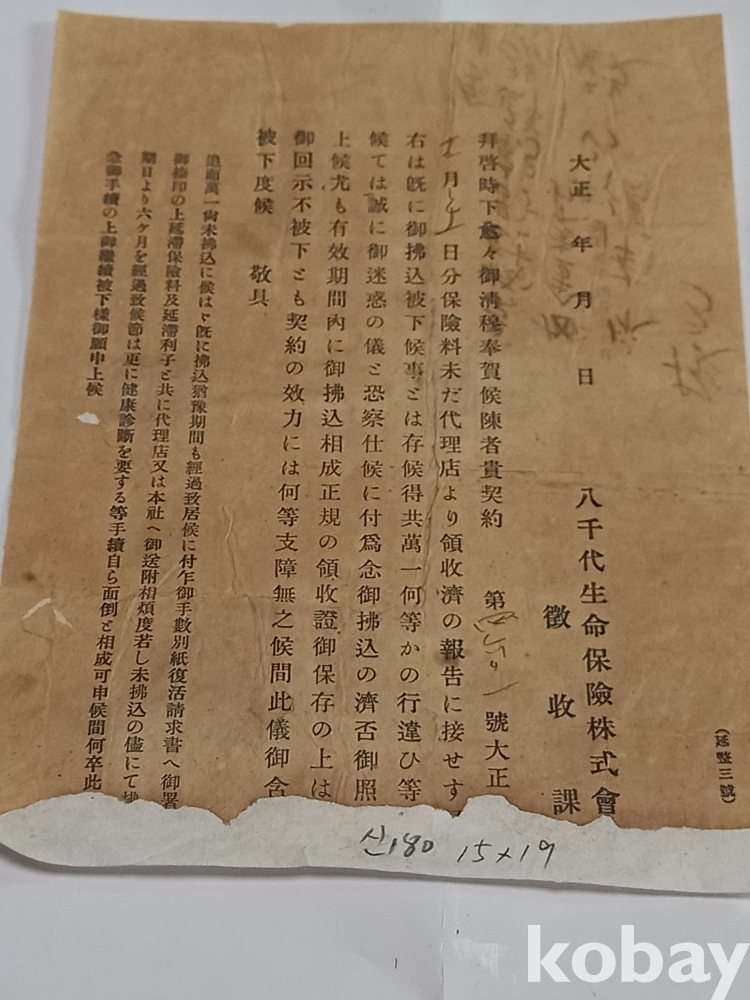 (延整三號)
八千代生命保險株式會
徵收課
大正 年 月 日
拜啓時下愈々御淸穆奉賀候陳者貴契約 第 號大正
月 日分保險料未だ代理店より領收濟の報告に接せす
右は旣に御拂込被下候事とは存候得共萬一何等かの行違ひ等
候ては誠に御迷惑の儀と恐察仕候に付爲念御拂込の濟否御照
上候尤も有效期間內に御拂込相成正規の領收證御保存の上は
御回示不被下とも契約の效力には何等支障無之候間此儀御含
被下度候 敬具
追而萬一尙未拂込に候はゞ旣に拂込猶豫期間も經過致居候に付乍御手數別紙復活請求書へ御署
御捺印の上延滯保險料及延滯利子と共に代理店又は本社へ御送附相煩度若し未拂込の儘にて拂
期日より六ケ月を經過致候節は更に健康診斷を要する等手續自ら面倒と相成可申候間何卒此
急御手續の上御繼續被下樣御願申上候
신180 15×19
kobay